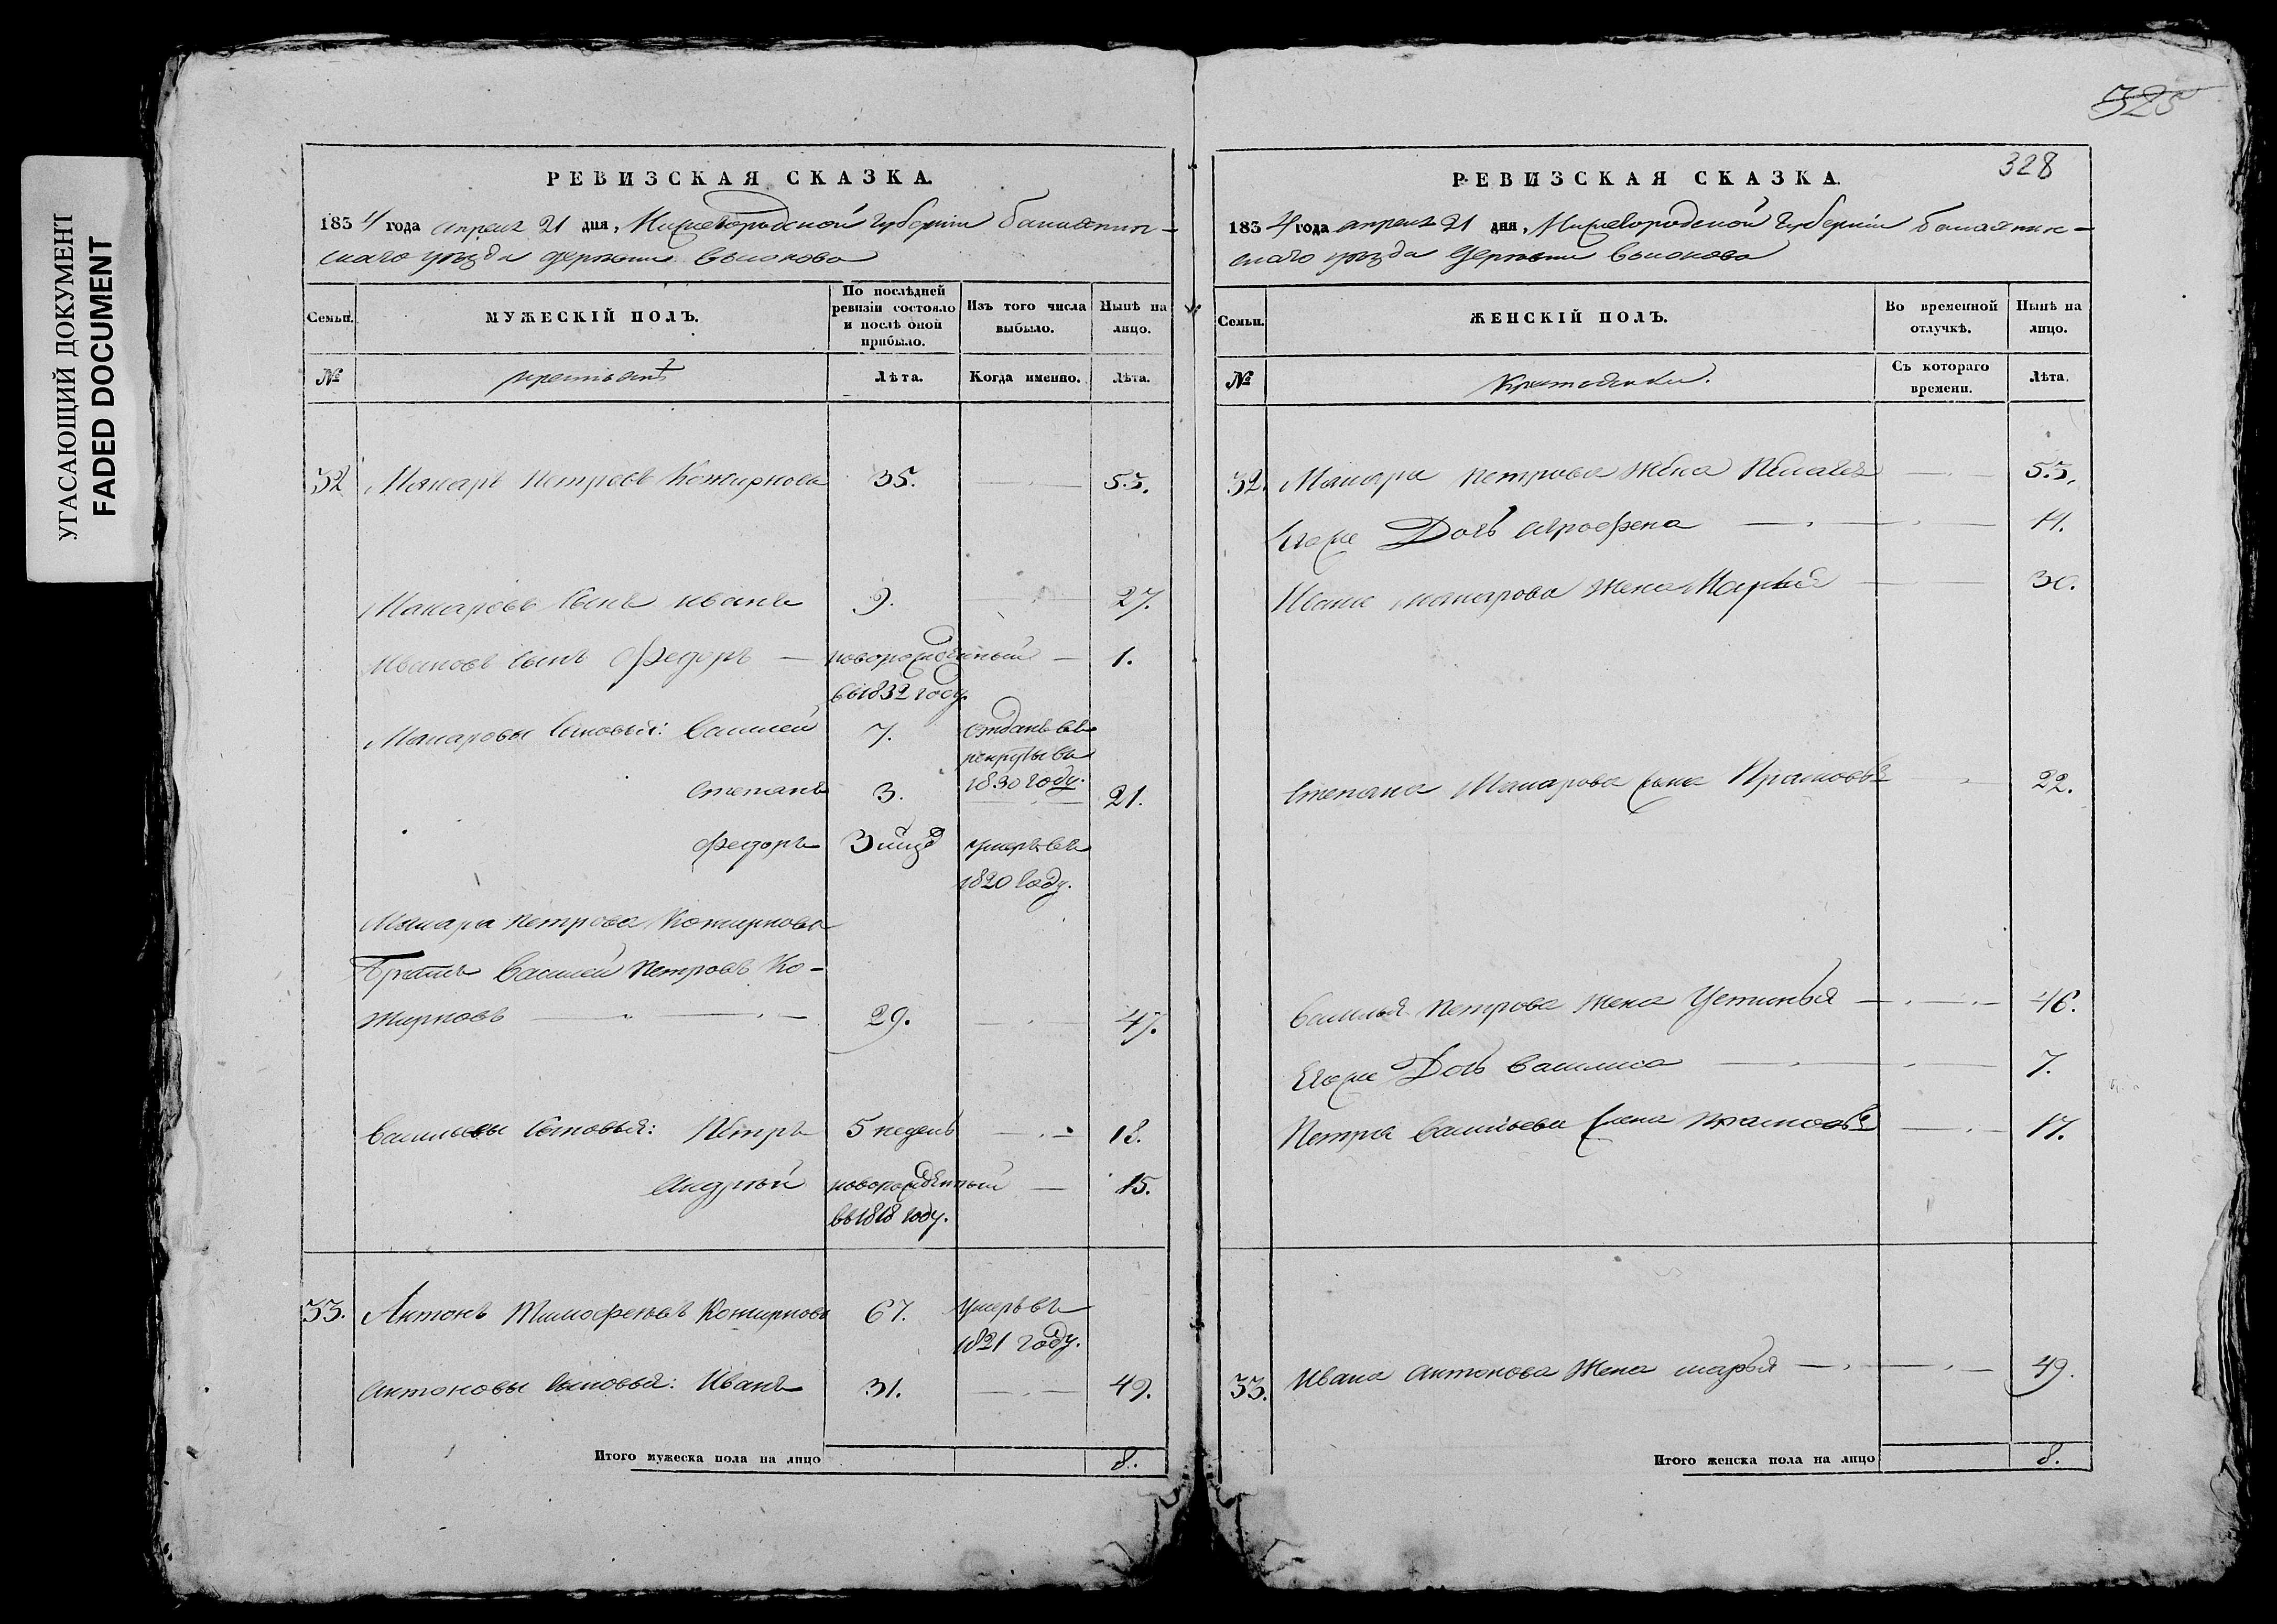 УГАСАЮЩИЙ ДОКУМЕНТ
FADED DOCUMENT
РЕВИЗСКАЯ СКАЗКА.
1834 года апреля 21 дня, Нижегородской губернии
скаго уезда деревни
Семьи.
МУЖЕСКІЙ ПОЛЪ.
По послѣдней ревизіи состояло и послѣ оной прибыло.
Изъ того числа выбыло.
Нынѣ на лицо.
№
Лѣта.
Когда именно.
Лѣта.
32 Макаръ Петровъ 35. 53.
Макаровъ сынъ Иванъ 9. 27.
Ивановъ сынъ Федоръ — новорожденный — 1.
въ 1832 году.
Макаровы сыновья: Василей 7. отданъ въ
рекруты въ
1830 году.
Степанъ 3. 21.
Федоръ 3 умеръ въ
1820 году.
Макара Петрова
Братъ Василей Петровъ Ко-
жирновъ 29. 47.
Васильевы сыновья: Петръ 5 недель 18.
Андрей новорожденный — 15.
въ 1818 году.
33. Антонъ Тимофеевъ 67. умеръ въ
1821 году.
Антоновы сыновья: Иванъ 31. 49.
Итого мужеска пола на лицо 8.
325
328
РЕВИЗСКАЯ СКАЗКА.
1834 года апреля 21 дня, Нижегородской губернии
скаго уезда деревни
Семьи.
ЖЕНСКІЙ ПОЛЪ.
Во временной отлучкѣ.
Нынѣ на лицо.
№
Съ котораго времени.
Лѣта.
32. Макара Петрова жена 53.
Егоже Дочь Агрофена 14.
Ивана Макарова жена Марья 30.
Степана Макарова жена Прасковья 22.
Василья Петрова жена Устинья 46.
Егоже Дочь Василиса 7.
Петра Васильева жена Прасковья 17.
33. Ивана Антонова жена Марья 49.
Итого женска пола на лицо 8.